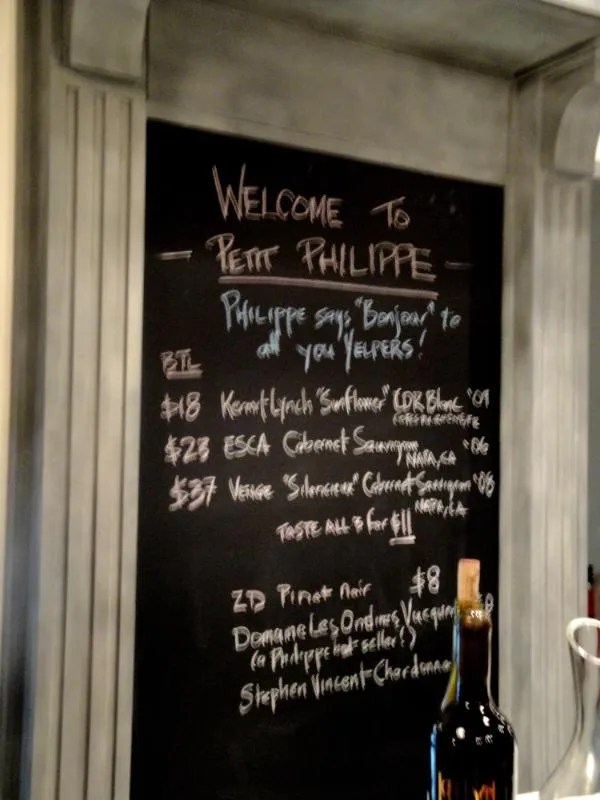 WELCOME TO
PETIT PHILIPPE
PHILIPPE says "Bonjour" to
all you YELPERS!
BTL
$18 Kermit Lynch "Sunflower" CDR Blanc '09
$23 ESCA Cabernet Sauvignon '06
NAPA, CA
$37 VENGE "Silencieux" Cabernet Sauvignon '08
NAPA, CA
TASTE ALL 3 for $11
ZD Pinot Noir $8
Domaine Les Ondines
(a Philippe best-seller!)
Stephen Vincent Chardonna